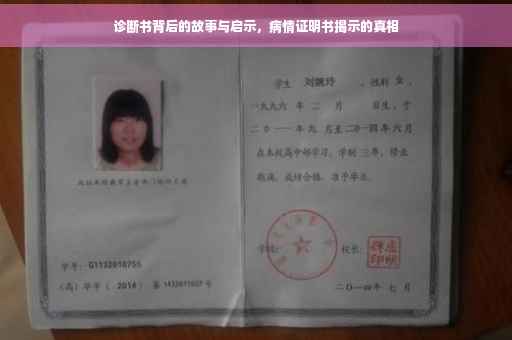 诊断书背后的故事与启示，病情证明书揭示的真相
学生 刘婉玲 ，性别 女 ，
一九九六 年 二 月 日生，于
二〇一一 年 九 月至 二〇一四 年 六 月
在本校高中部学习，学制 三 年，修业
期满，成绩合格，准予毕业。
学校：
校长：
学号：G1132010755
（高）毕字（ 2014 ）第 1432011607 号
二〇一四年 七 月